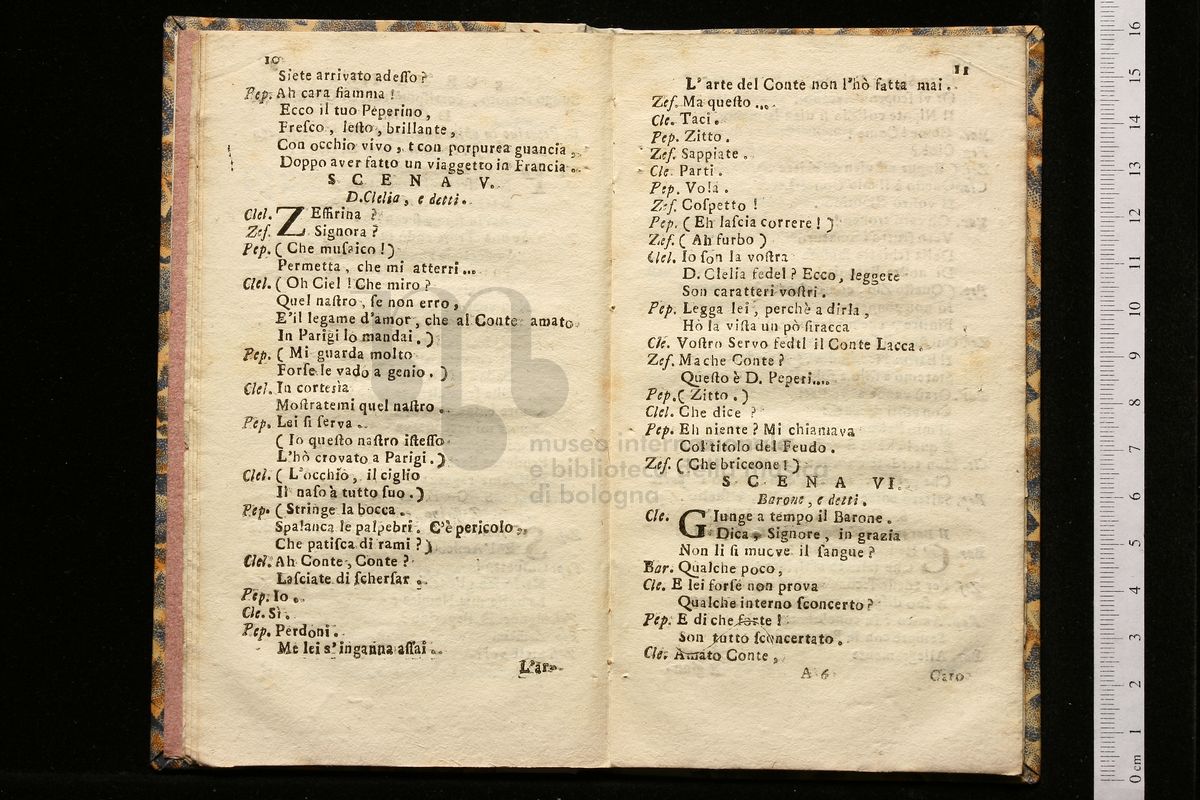 10
Siete arrivato adeſſo?
Pep. Ah cara fiamma!
Ecco il tuo Peperino,
Freſco, leſto, brillante,
Con occhio vivo, t con porpurea guancia,
Doppo aver fatto un viaggetto in Francia.
SCENA V.
D. Clelia, e detti.
Clel. ZEffirina?
Zef. Signora?
Pep. (Che muſaico!)
Permetta, che mi atterri...
Clel. (Oh Ciel! Che miro?
Quel naſtro, ſe non erro,
E'il legame d'amor, che al Conte amato
In Parigi lo mandai.)
Pep. (Mi guarda molto
Forſe le vado a genio.)
Clel. In cortesìa
Moſtratemi quel naſtro.
Pep. Lei ſi ſerva.
(Io queſto naſtro iſteſſo
L'hò crovato a Parigi.)
Clel. (L'occhio, il ciglio
Il naſo à tutto ſuo.)
Pep. (Stringe la bocca.
Spalanca le palpebri. C'è pericolo,
Che patiſca di rami?)
Clel. Ah Conte, Conte?
Laſciate di ſcherſar.
Pep. Io.
Cle. Sì.
Pep. Perdoni.
Me lei s'inganna aſſai.
L'ar-
11
L'arte del Conte non l'hò fatta mai.
Zef. Ma queſto....
Cle. Taci.
Pep. Zitto.
Zef. Sappiate.
Cle. Parti.
Pep. Vola.
Zef. Coſpetto!
Pep. (Eh laſcia correre!)
Zef. (Ah furbo)
Clel. Io ſon la voſtra
D. Clelia fedel? Ecco, leggete
Son caratteri voſtri.
Pep. Legga lei, perchè a dirla,
Hò la viſta un pò ſiracca
Cle. Voſtro Servo fedtl il Conte Lacca.
Zef. Ma che Conte?
Queſto è D. Peperi....
Pep. (Zitto.)
Clel. Che dice?
Pep. Eh niente? Mi chiamava
Col titolo del Feudo.
Zef. (Che briceone!)
SCENA VI.
Barone, e detti.
Cle. GIunge a tempo il Barone.
Dica, Signore, in grazia
Non li ſi mueve il ſangue?
Bar. Qualche poco,
Cle. E lei forſe non prova
Qualche interno ſconcerto?
Pep. E di che forte!
Son tutto ſconcertato.
Cle. Amato Conte,
A 6
Caro
museo internazionale
e biblioteca della musica
di bologna
16
15
14
13
12
11
10
9
8
7
6
5
4
3
2
1
0 cm